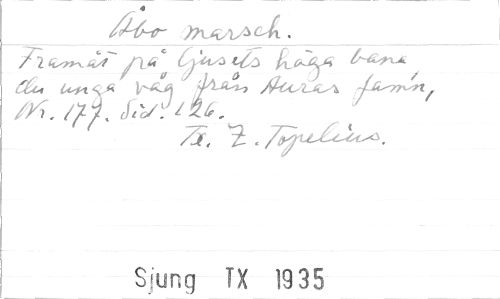 Åbo marsch.
Framåt på ljusets höga bana
du unga våg från Auras famn,
Nr. 177. Sid. 126.
Tx. Z. Topelius.
Sjung TX 1935